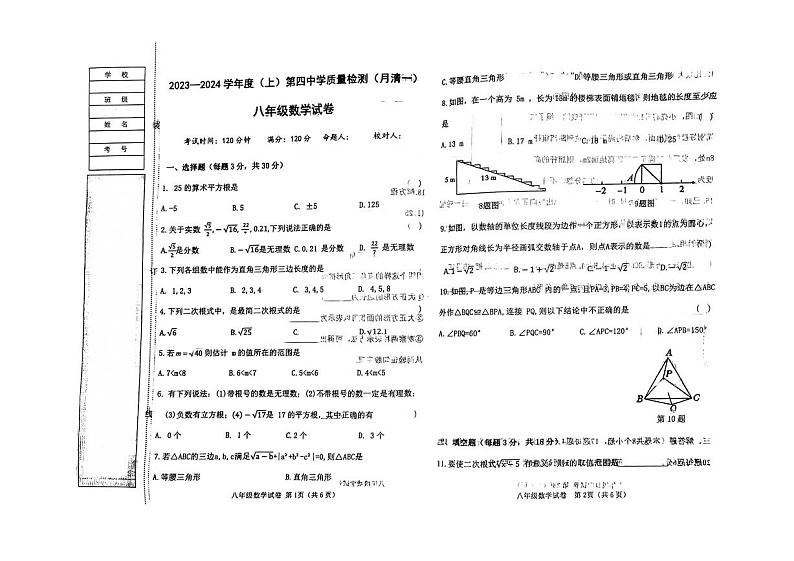 学 校
班 级
姓 名
考 号
装
订
线
2023—2024学年度（上）第四中学质量检测（月清一）
八年级数学试卷
考试时间：120分钟 满分：120分 命题人： 校对人：
一、选择题（每题3分，共30分）
1. 25的算术平方根是 （ ）
A.-5 B.5 C. ±5 D.125
2.关于实数 √3/2,-√16,22/7,0.21,下列说法正确的是 （ ）
A.√3/2是分数 B.-√16是无理数 C.0.21是分数 D. 22/7是无理数
3.下列各组数中能作为直角三角形三边长度的是
A. 1,2,3 B. 2,3,4 C. 3,4,5 D. 4,5,8
4.下列二次根式中，是最简二次根式的是
A.√6 B.√25 C. D.√12.1
5.若m=√40则估计 m的值所在的范围是
A.7<m<8 B.6<m<7 C.5<m<6 D.4<m<5
6. 有下列说法：(1)带根号的数是无理数；(2)不带根号的数一定是有理数；
(3)负数有立方根；(4)-√17是 17的平方根,其中正确的有 ）
A. 0个 B. 1个 C.2个 D. 3个
7.若△ABC的三边a,b,c满足√a-b+|a²+b²-c²|=0,则△ABC是
A.等腰三角形 B.直角三角形
八年级数学试卷 第1页（共6页）
C.等腰直角三角形 D.等腰三角形或直角三角形
8.如图，在一个高为 5m ，长为 13m的楼梯表面铺地毯，则地毯的长度至少应
是
A.13 m B.17 m C.18 m D.25m
5 m 13 m
8题图
A
-2 -1 0 1 2
9题图
9.如图，以数轴的单位长度线段为边作一个正方形，以表示数1的点为圆心，
正方形对角线长为半径画弧交数轴于点A，则点A表示的数是
A.1-√2 B.-1+√2 C.-1-√2 D.-√2
10.如图,P 是等边三角形ABC 内的一点,且PA=3,PB=4,PC=5,以BC为边在△ABC
外作△BQC≌△BPA,连接 PQ,则以下结论中不正确的是 （ ）
A.∠PBQ=60° B.∠PQC=90° C.∠APC=120° D.∠APB=150°
A
P
B C
Q
第10题
填空题（每题 3分，共18分）
11.要使二次根式 有意义，则x的取值范围是
八年级数学试卷 第2页（共6页）